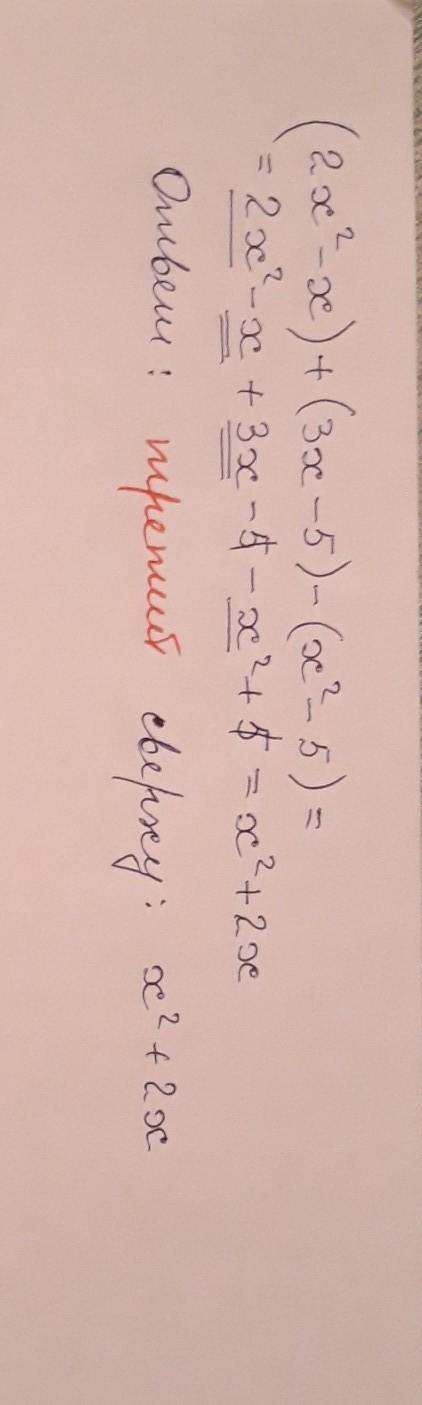 (2x² - x) + (3x - 5) - (x² - 5) =
= 2x² - x + 3x - 5 - x² + 5 = x² + 2x
Ответ: третий сверху: x² + 2x